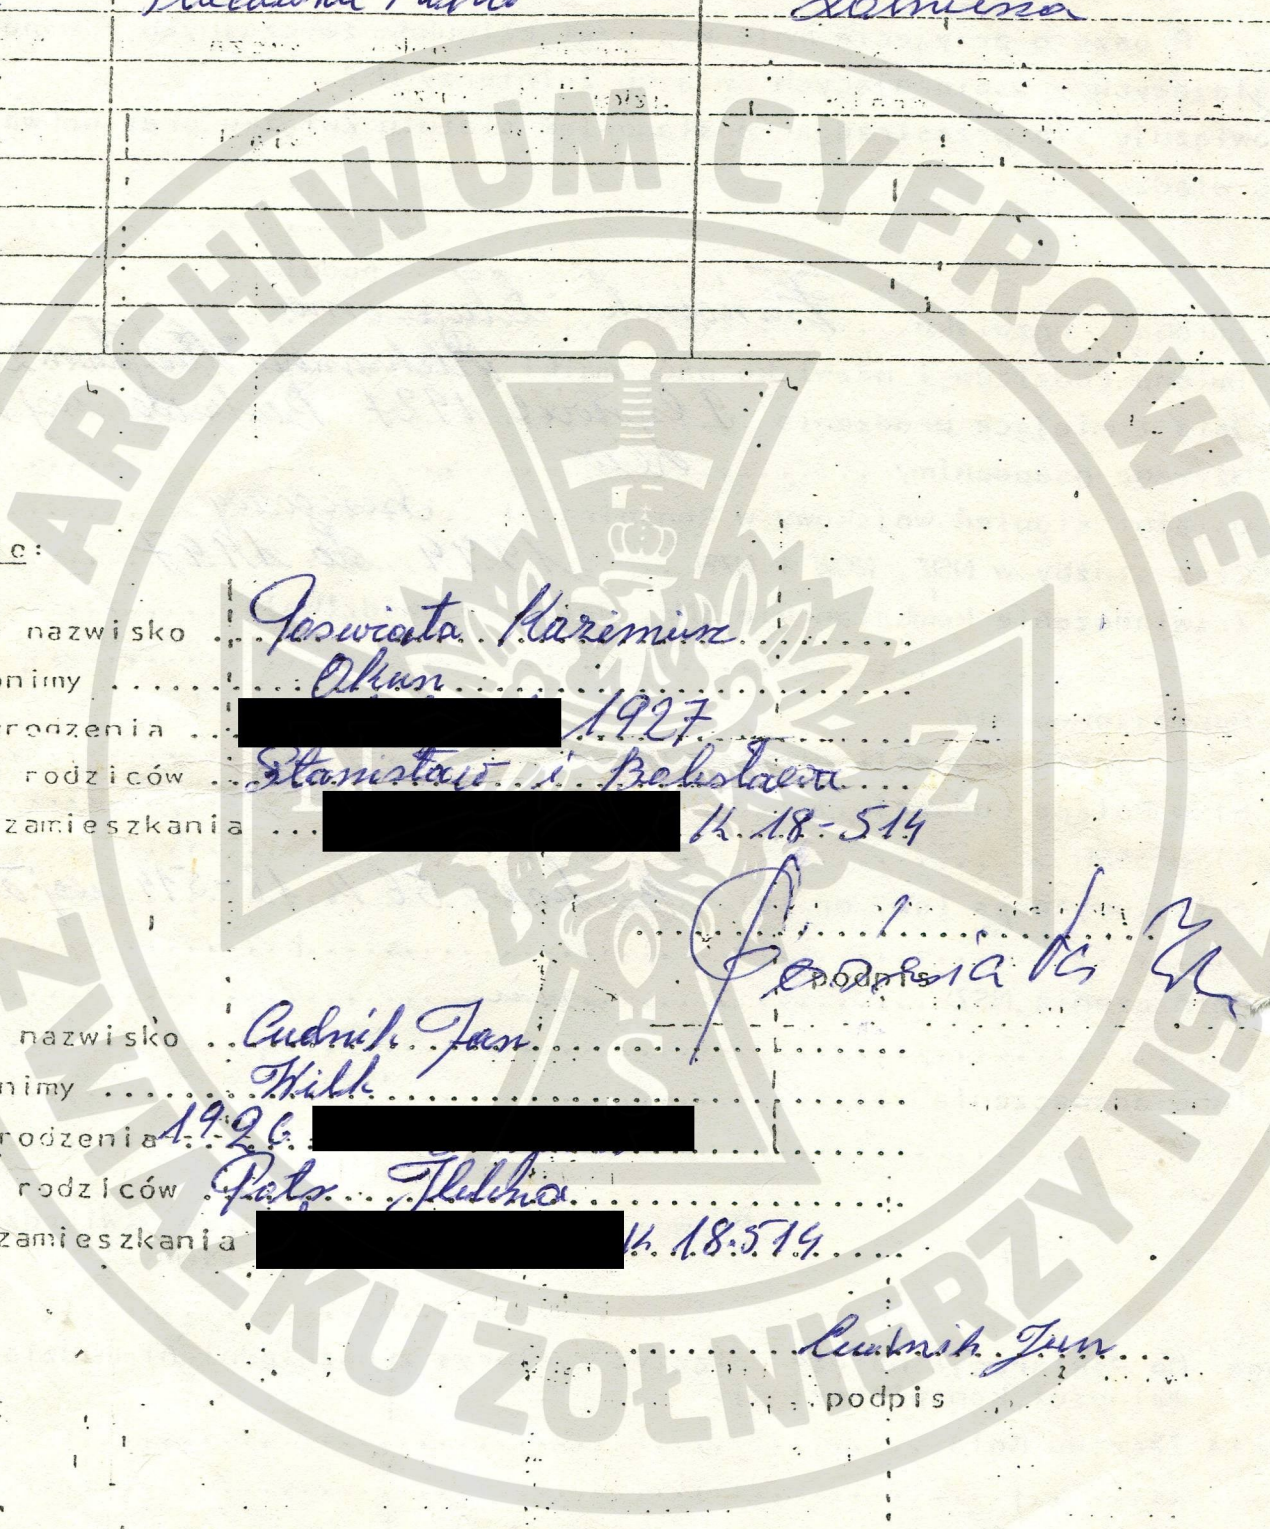 ARCHIWUM CYFROWE
ZWIĄZKU ŻOŁNIERZY NSZ
o:
nazwisko Poświata Kazimierz
nimy Okuń
rodzenia 1927
rodziców Stanisław i Bolesława
zamieszkania K. 18-514
podpis
nazwisko Cudnik Jan
nimy Wilk
rodzenia 1926
rodziców Helena
zamieszkania K. 18-514
Cudnik Jan
podpis